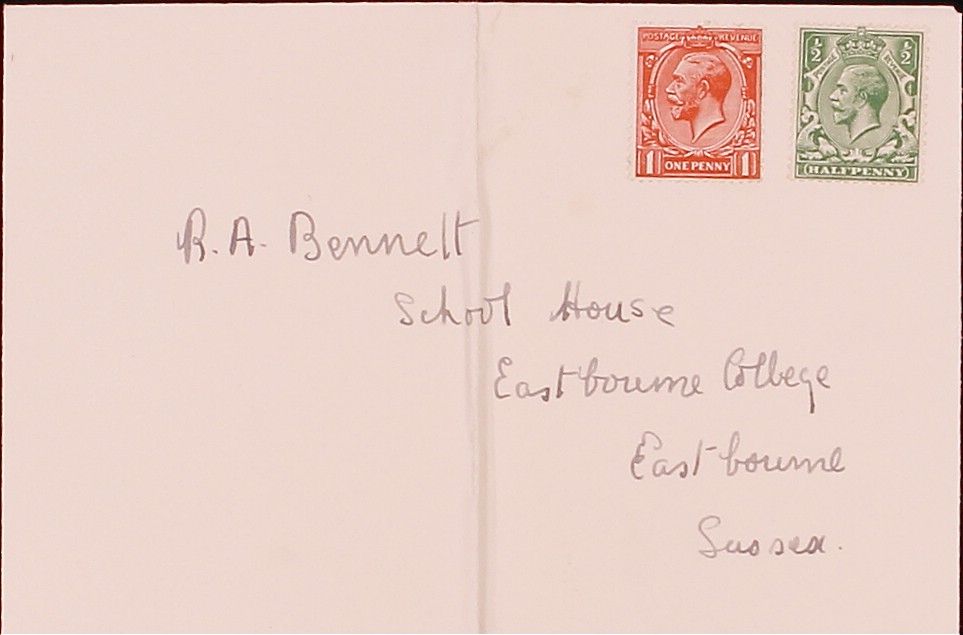 POSTAGE REVENUE
1 ONE PENNY 1
½ ½
POSTAGE REVENUE
HALFPENNY
R. A. Bennett
School House
Eastbourne College
Eastbourne
Sussex.